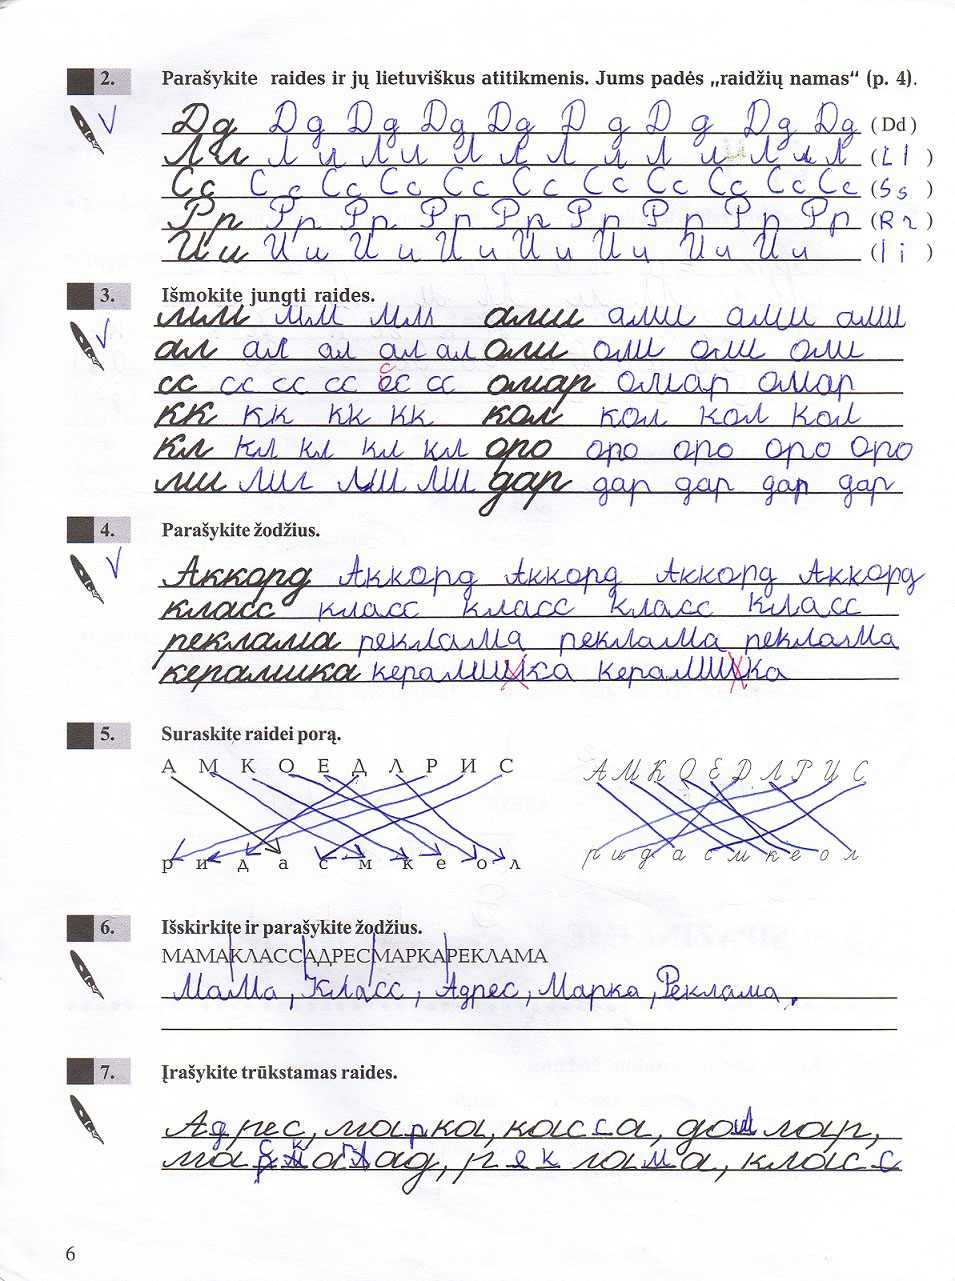 2. Parašykite raides ir jų lietuviškus atitikmenis. Jums padės „raidžių namas“ (p. 4).
Дд Дд Дд Дд Дд Д д Д д Дд Дд (Dd)
Лл Л л Лл Л Л Л л Л л Л л Л (L l)
Сс С с Сс Сс Сс Сс Сс Сс Сс Сс Сс (S s)
Рр Рр Рр Рр Рр Рр Рр Рр Рр (R r)
Ии И и И и И и И и И и И и И и (I i)
3. Išmokite jungti raides.
ал ал ал ал ал
сс сс сс сс сс сс омар омар омар
кк кк кк кк кол кол кол кол
кл кл кл кл кл оро оро оро оро оро
дар дар дар дар дар
4. Parašykite žodžius.
Аккорд Аккорд Аккорд Аккорд Аккорд
класс класс класс класс класс
реклама реклама реклама реклама
керамика
5. Suraskite raidei porą.
А М К О Е Д Л Р И С А М К О Е Д Л Р И С
р и д а с м к е о л р и д а с м к е о л
6. Išskirkite ir parašykite žodžius.
МАМАКЛАССАДРЕСМАРКАРЕКЛАМА
МаМа, Класс, Адрес, Марка, Реклама.
7. Įrašykite trūkstamas raides.
Адрес, марка, касса,
реклама, класс
6